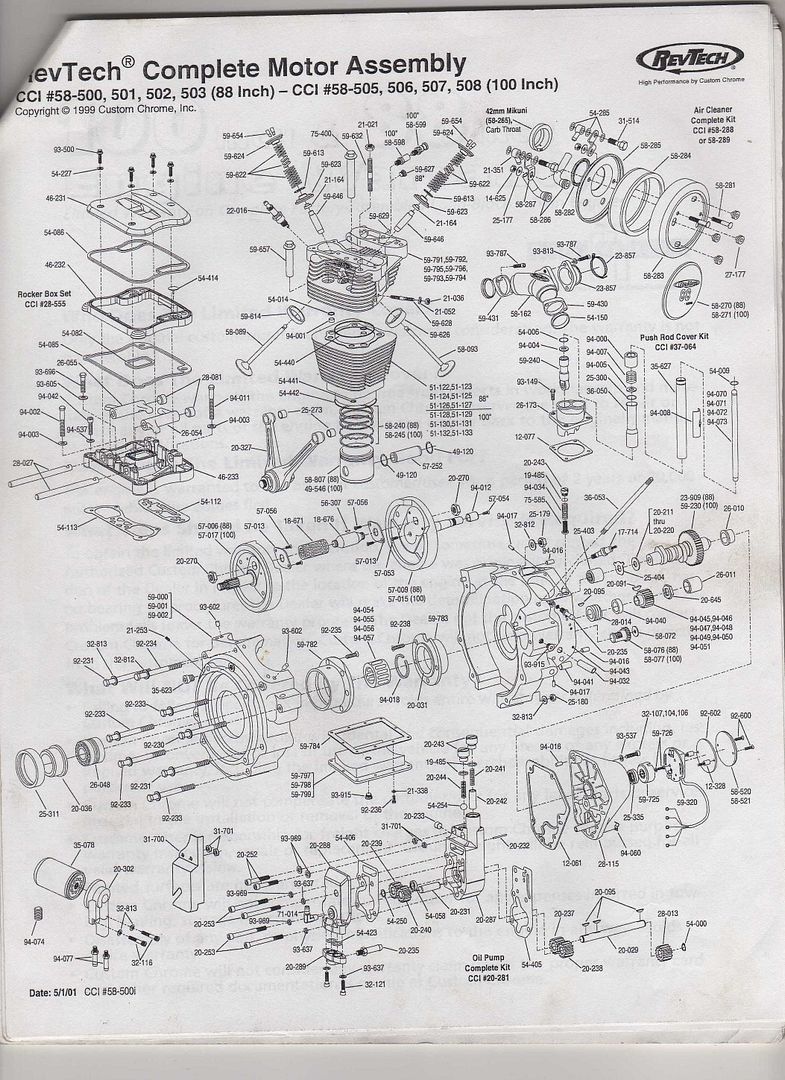 RevTech® Complete Motor Assembly
CCI #58-500, 501, 502, 503 (88 Inch) – CCI #58-505, 506, 507, 508 (100 Inch)
Copyright © 1999 Custom Chrome, Inc.
REVTECH®
High Performance by Custom Chrome
93-500
54-227
46-231
54-086
46-232
54-414
Rocker Box Set
CCI #28-555
54-082
54-085
26-055
93-696
93-605
94-042
94-002
94-537
94-003
28-081
94-011
94-003
26-054
28-027
46-233
54-112
54-113
59-654
59-624
59-622
59-613
59-623
21-164
59-646
22-016
59-657
75-400
59-632
21-021
100"
58-598
100"
58-599
59-627
88"
59-654
59-624
59-622
59-613
59-623
21-164
59-646
59-629
59-791, 59-792,
59-795, 59-796,
59-793, 59-794
54-014
59-614
58-089
94-001
21-036
21-052
59-628
59-626
58-093
54-440
54-441
54-442
25-273
20-327
51-122, 51-123
51-124, 51-125
51-126, 51-127
88"
51-128, 51-129
51-130, 51-131
51-132, 51-133
100"
58-240 (88)
58-245 (100)
49-120
57-252
49-120
58-807 (88)
49-546 (100)
42mm Mikuni
(58-265)
Carb Throat
54-285
31-514
Air Cleaner
Complete Kit
CCI #58-288
or 58-289
58-285
58-284
58-281
21-351
14-625
25-177
58-287
58-286
58-282
58-283
27-177
58-270 (88)
58-271 (100)
93-787
93-813
93-787
23-857
23-857
59-431
58-162
59-430
54-150
Push Rod Cover Kit
CCI #37-064
54-006
94-004
59-240
93-149
26-173
12-077
94-000
94-007
94-005
25-300
36-050
35-627
94-008
54-009
94-070
94-071
94-072
94-073
20-243
19-485
94-034
75-585
25-179
32-812
36-053
94-016
25-403
17-714
20-211
thru
20-220
23-909 (88)
59-230 (100)
26-010
25-404
26-011
20-091
20-095
20-645
94-040
28-014
58-072
58-076 (88)
58-077 (100)
94-045, 94-046
94-047, 94-048
94-049, 94-050
94-051
94-016
94-043
94-032
93-915
94-041
94-017
25-180
32-813
57-006 (88)
57-017 (100)
57-056
57-013
18-671
56-307
18-676
57-056
20-270
57-013
57-053
57-009 (88)
57-015 (100)
20-270
94-012
57-054
94-017
59-000
59-001
59-002
93-602
21-253
32-813
92-234
92-231
32-812
35-623
92-233
92-233
92-230
92-233
92-233
93-602
59-782
92-235
94-054
94-055
94-056
94-057
92-238
59-783
94-018
20-031
25-311
20-036
26-048
59-784
59-797
59-798
59-799
93-915
21-338
92-236
20-243
19-485
20-244
54-254
20-241
20-242
20-232
94-016
93-537
32-107, 104, 106
59-726
92-602
92-600
12-328
58-520
58-521
59-320
59-725
25-335
94-060
28-115
12-061
35-078
31-700
31-701
20-302
32-813
94-074
94-077
32-116
20-252
20-253
93-969
93-969
20-253
20-288
93-637
71-014
54-406
20-239
31-701
54-423
54-250
20-240
54-058
20-231
20-287
20-289
93-637
32-121
20-235
Oil Pump
Complete Kit
CCI #20-281
54-405
20-237
20-238
20-095
20-029
28-013
54-000
Date: 5/1/01 CCI #58-500i